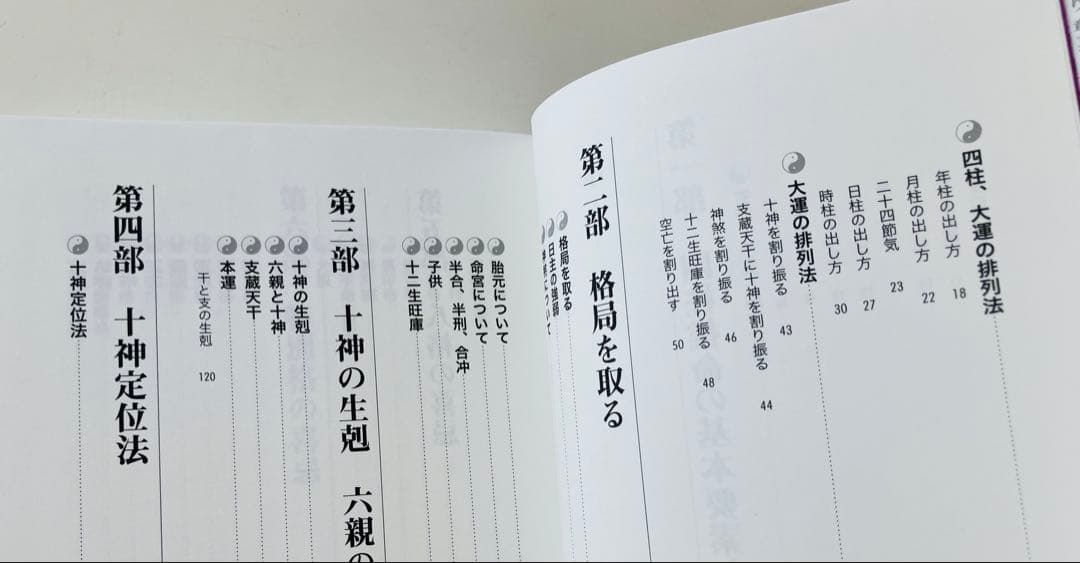 四柱、大運の排列法
年柱の出し方 18
月柱の出し方 22
二十四節気 23
日柱の出し方 27
時柱の出し方 30
大運の排列法
十神を割り振る 43
支蔵天干に十神を割り振る 44
神煞を割り振る 46
十二生旺庫を割り振る 48
空亡を割り出す 50
第二部 格局を取る
格局を取る
日主の強弱
胎元について
命宮について
半合、半刑、合冲
子供
十二生旺庫
第三部 十神の生剋 六親の
十神の生剋
六親と十神
支蔵天干
本運
干と支の生剋 120
第四部 十神定位法
十神定位法